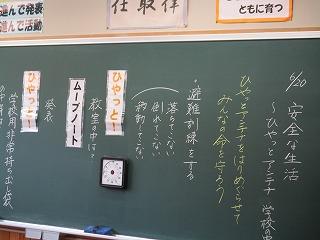 進んで発表
進んで活動
任 取 律
ともに育つ
6/20 安全な生活
～ひやっとアンテナ 学校の中
ひやっとアンテナをはりめぐらせて
みんなの命を守ろう
・避難訓練をする
落ちてこない
倒れてこない
移動してこない
ひやっと!
教室の中は?
ムーブノート
発表
ひやっと!
学校用非常持ち出し袋
の中身は